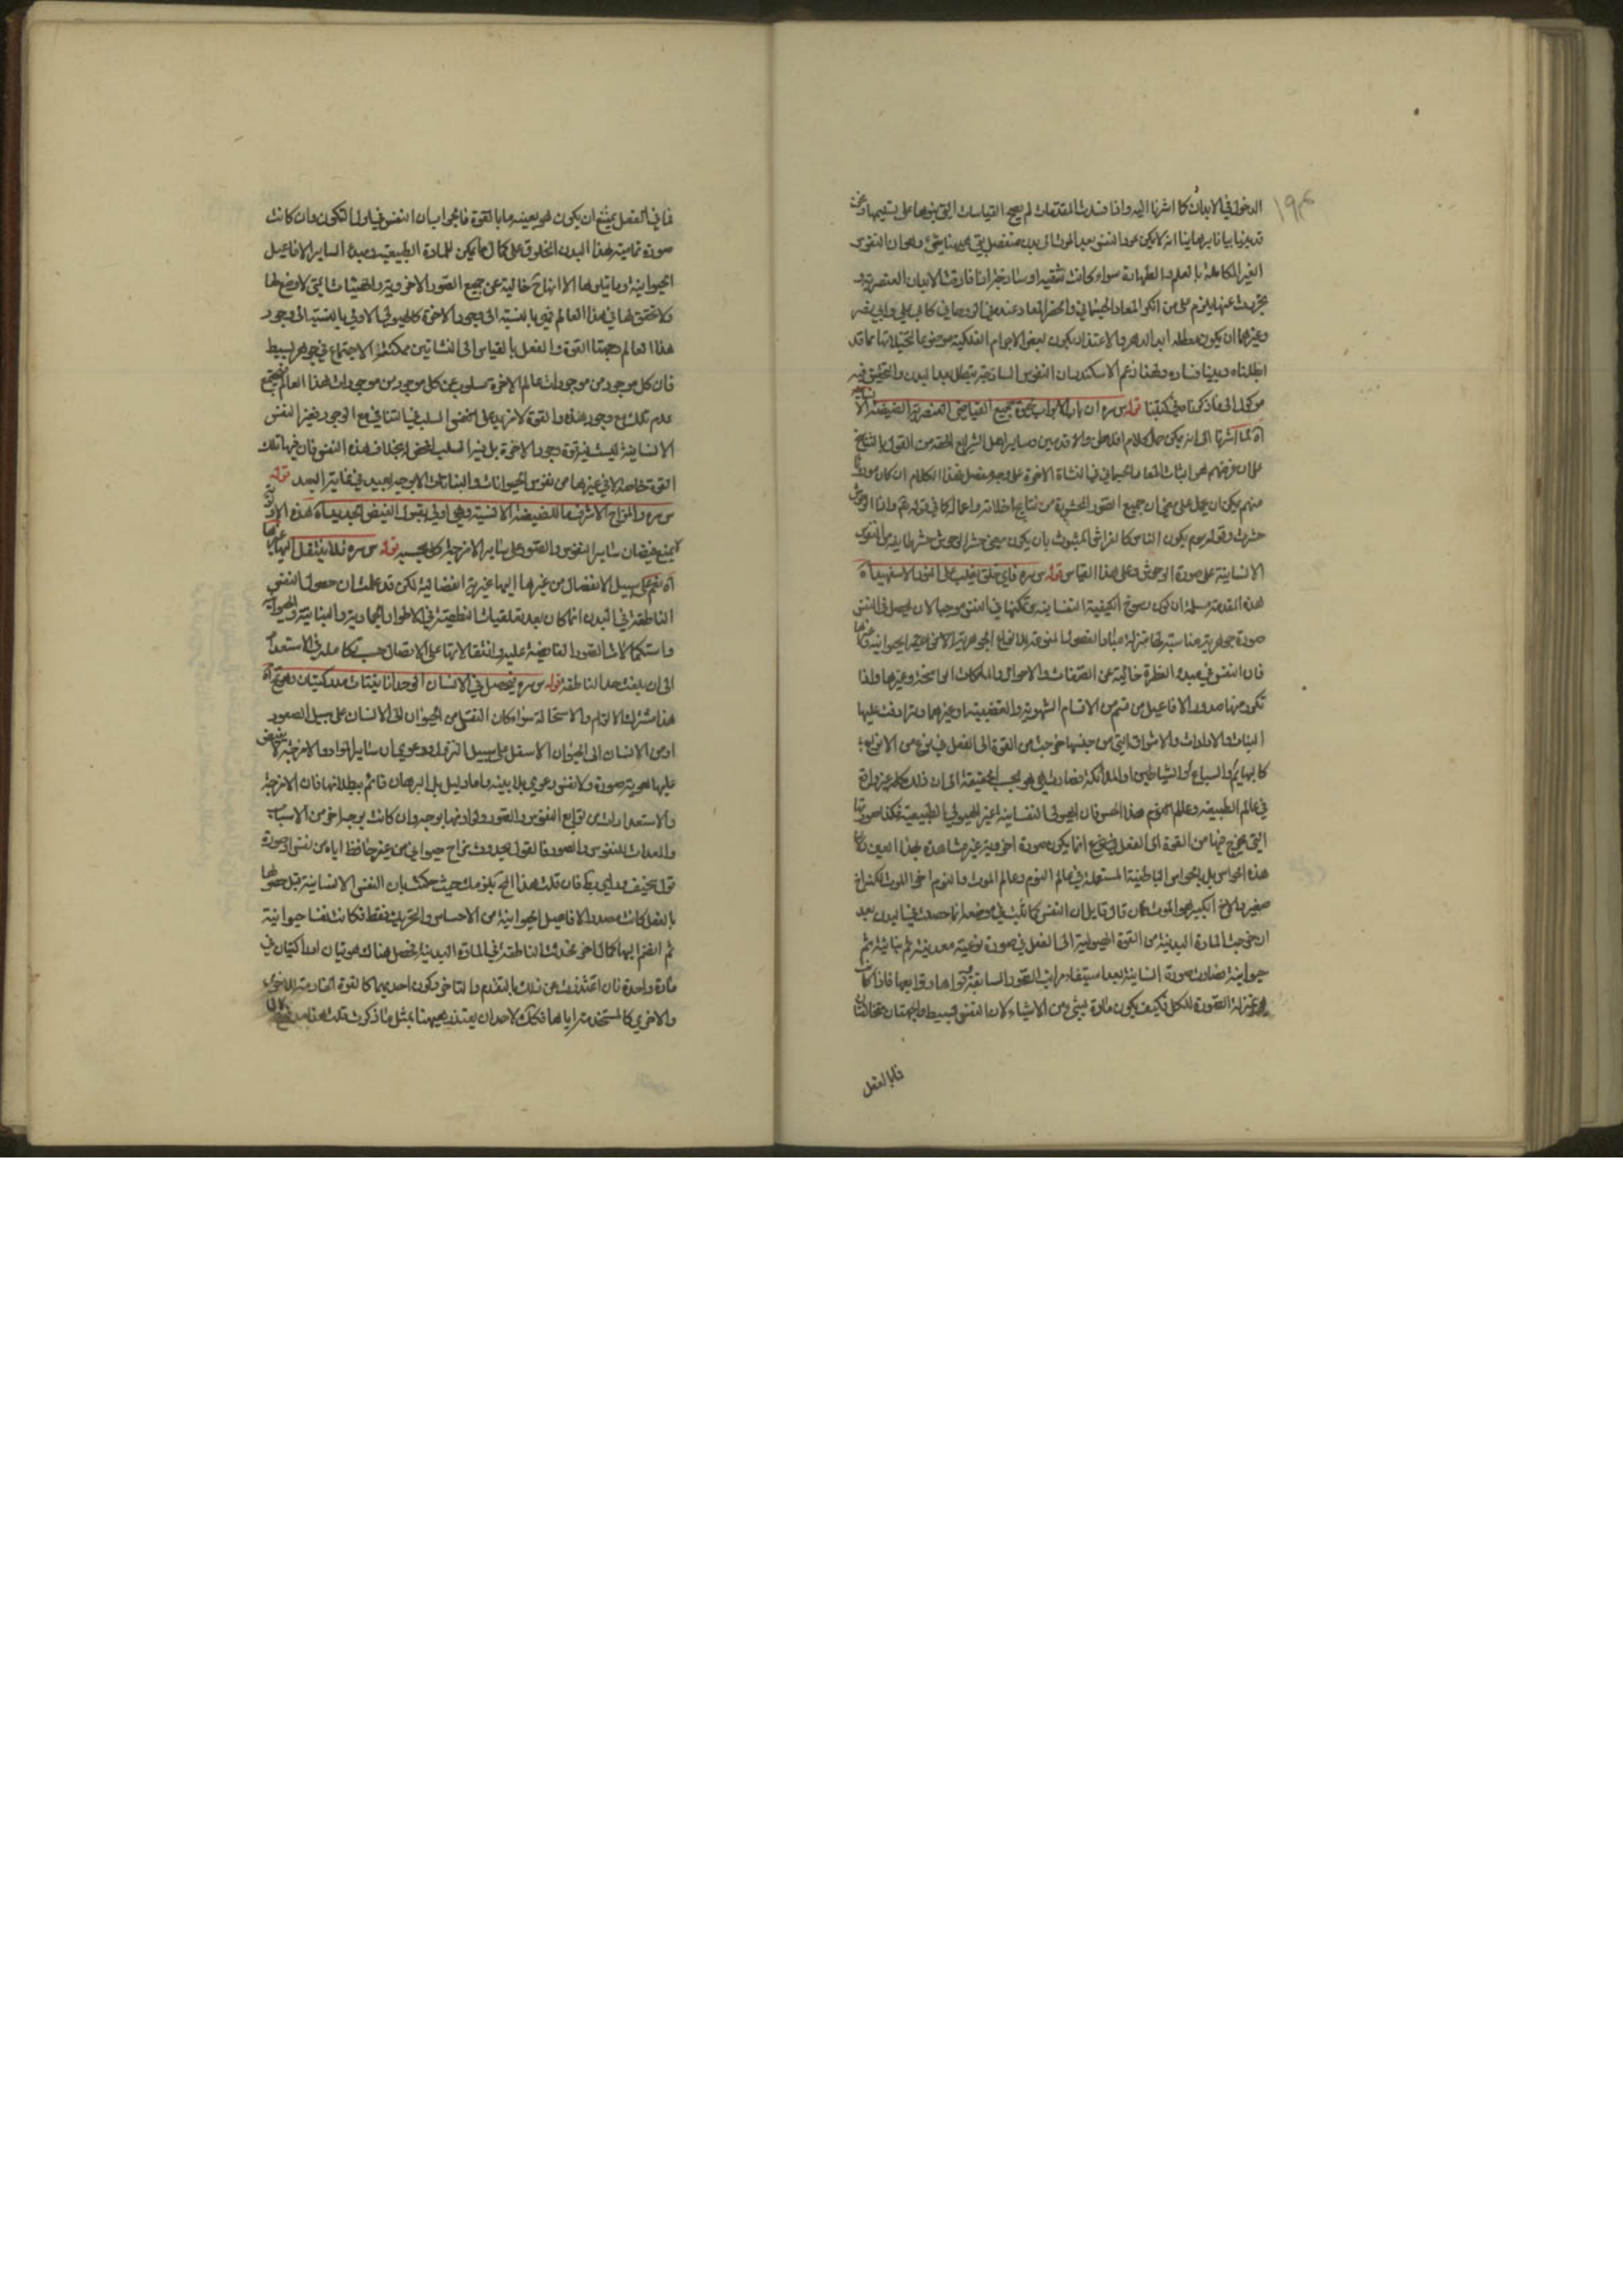 ١٩٣
الدخول في الابدان كما اشرنا اليه واذا فسدت المقدمات لم يصح القياسات التي بنوها على تسليمها ونحن
قد بينا بيانا برهانيا انه لا يمكن عود النفس بعد الموت الى بدن منفصل بقي ههنا شيء وهو ان النفوس
الغير الكاملة بالعلم والطهارة سواء كانت شقية او ساذجة اذا فارقت الابدان العنصرية و
تجردت عنها يلزم على من انكر المعاد الجسماني وانحصر المعاد عنده في الروحاني كابي علي وابي نصر
وغيرهما ان يكون معطلة ابد الدهر والاعتذار بكون بعض الاجرام الفلكية موضوعا لتخيلاتها مما قد
ابطلناه وبينا فساده ولهذا زعم الاسكندر ان النفوس الساذجة تبطل بعد البدن والتحقيق فيه
موكول الى ما ذكرناه في كتبنا قوله س سره ان باب الابواب لحيوة جميع الصياصي العنصرية الصيصية الانسانية
آه لما اشرنا الى انه يمكن حمل كلام افلاطن والاقدمين وساير اهل الشرايع الحقة من القول بالتناسخ
على ان غرضهم هو اثبات المعاد الجسماني في النشاة الاخرة على وجه مفصل فهذا الكلام ان كان موروثا
منهم يمكن ان يحمل على معنى ان جميع الصور الحشرية من نتايج اخلاقه واعماله كما في قوله تعم واذا الوحوش
حشرت وقوله يوم يكون الناس كالفراش المبثوث بان يكون معنى حشر الوحوش حشر طايفة من النفوس
الانسانية على صورة الوحوش وعلى هذا القياس قوله س سره فاي خلق يغلب على النور الاسفهبد آه
هذه المقدمة مسلمة ان كون رسوخ الكيفية النفسانية وتمكنها في النفس موجبا لان يحصل في النفس
صورة جوهرية مناسبة لها منزلة مبادي الفصول المنوعة للانواع الجوهرية الاخروية الحيوانية وغيرها
فان النفس في مبدء الفطرة خالية عن الصفات والاحوال والملكات الراسخة وغيرها ولذا
تكرر منها صدور الافاعيل من قسم من الاقسام الشهوية والغضبية وغيرهما وترادفت عليها
النيات والارادات والاشواق التي من جنسها خرجت من القوة الى الفعل في نوع من الانواع
كالبهايم والسباع او الشياطين او الملائكة فصارت هي هو بحسب الحقيقة الا ان ذلك كله غير واقع
في عالم الطبيعة وعالم الحس فان الهيولى النفسانية غير الهيولى الطبيعية فكذا صورتها
التي يخرج فيها من القوة الى الفعل في نوع انما يكون صورة اخروية غير مشاهدة بهذا العين ولا
هذه الحواس بل بالحواس الباطنية المستعملة في عالم النوم وعالم الموت والنوم اخ الموت لكنه اخ
صغير والاخ الكبير هو الموت فان قال قايل ان النفس كما ثبت في موضعه انما حصلت في البدن بعد
ان خرجت المادة البدنية من القوة الهيولية الى الفعل في صورة نوعية معدنية ثم نباتية ثم
حيوانية فصارت صورة انسانية بعد استيفاء مراتب الصور السابقة وقواها وتوابعها فاذا كانت
بمنزلة الصورة للكل فكيف يكون مادة لشيء من الاشياء لان النفس بسيطة والجهتان متخالفتان
فما بالفعل
فما في الفعل يمتنع ان يكون هو بعينه ما بالقوة فالجواب ان النفس في اول التكون وان كانت
صورة تمامية لهذا البدن المخلوق على كمال ما يمكن للمادة الطبيعية ومبدء لساير الافاعيل
الحيوانية وما يتلوها الا انها خالية عن جميع الصور الاخروية والهيئات التي لا وضع لها
ولا تحقق لها في هذا العالم فهي بالنسبة الى وجود الاخرة كالهيولى الاولى بالنسبة الى وجود
هذا العالم وجهتا القوة والفعل بالقياس الى النشاتين ممكنة الاجتماع في جوهر بسيط
فان كل موجود من موجودات عالم الاخرة مسلوب عن كل موجود من موجودات هذا العالم فيجتمع
عدم تلك مع وجود هذه والقوة لا تزيد على محض السلب في التنافي مع الوجود وغير النفس
الانسانية ليست فيه قوة وجود الاخرة بل فيه السلب المحض بخلاف هذه النفس فان فيها تلك
القوة خاصة لا في غيرها من نفوس الحيوانات والنباتات الا بوجه بعيد في غاية البعد قوله
س سره والمزاج الاشرف ما للصيصية الانسية وهي اولى بقبول الفيض الجديد آه هذه الاولوية
لا يمنع فيضان ساير النفوس والصور على ساير الامزجة كل بحسبه قوله س سره فلا ينتقل اليها من غيرها
آه نعم على سبيل الانفصال من غيرها اليها غيرية انفصالية لكن قد علمت ان حصول النفس
الناطقة في البدن انما كان بعد تقلبات النطفة في الاطوار الجمادية والنباتية والحيوانية
واستكمالات الصور الفايضة عليها وانتقالاتها على الاتصال حسب تكامله في الاستعداد
الى ان بلغت حد الناطقة قوله س سره فيحصل في الانسان الواحد انانيتان مدركتان وهو مح آه
هذا مشترك الالزام والاستحالة سواء كان النقل من الحيوان الى الانسان على سبيل الصعود
او من الانسان الى الحيوان الاسفل على سبيل النزول ودعوى ان ساير المواد والامزجة لا يفيض
عليها لهوية صورة ولا نفس دعوى بلا بينة وامارة ودليل بل البرهان قائم ببطلانها فان الامزجة
والاستعدادات من توابع النفوس والصور ولوازمها بوجه وان كانت بوجه اخر من الاسباب
والمعدات للنفوس والصور فالقول بحدوث مزاج حيواني من غير حافظ اياه من نفس او صورة
قول سخيف وراي ركيك فان قلت هذا المح يلزمك حيث حكمت بان النفس الانسانية قبل حصولها
بالفعل كانت مصدرة الافاعيل الحيوانية من الاحساس والتحريك فقط فكانت نفسا حيوانية
ثم انضم اليها كمال اخر فحدثت الناطقة في المادة البدنية فحصل هناك هويتان ادراكيتان في
مادة واحدة فان اعتذرت عن ذلك بالتقدم والتاخر وكون احديهما كالقوة الخادمة للاخرى
والاخرى كالمستخدمة اياها فكذلك لاحد ان يعتذر ههنا بمثل ما ذكرت قلت